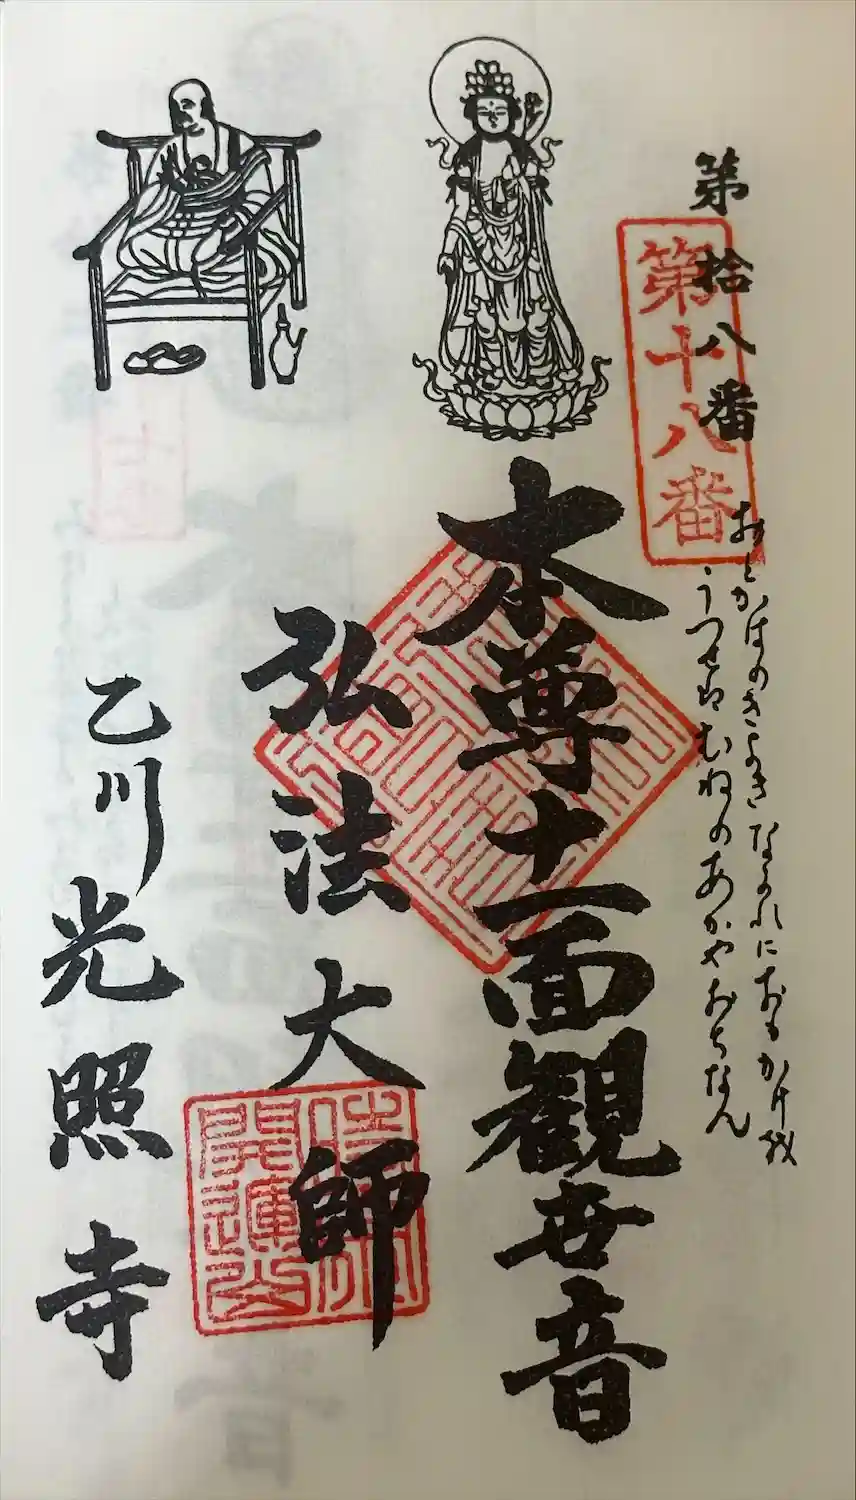 第拾八番
第十八番
おとかはのきよきながれにおもかけ越
うつせばむねのあかやおちなん
本尊十一面観世音
弘法大師
乙川光照寺